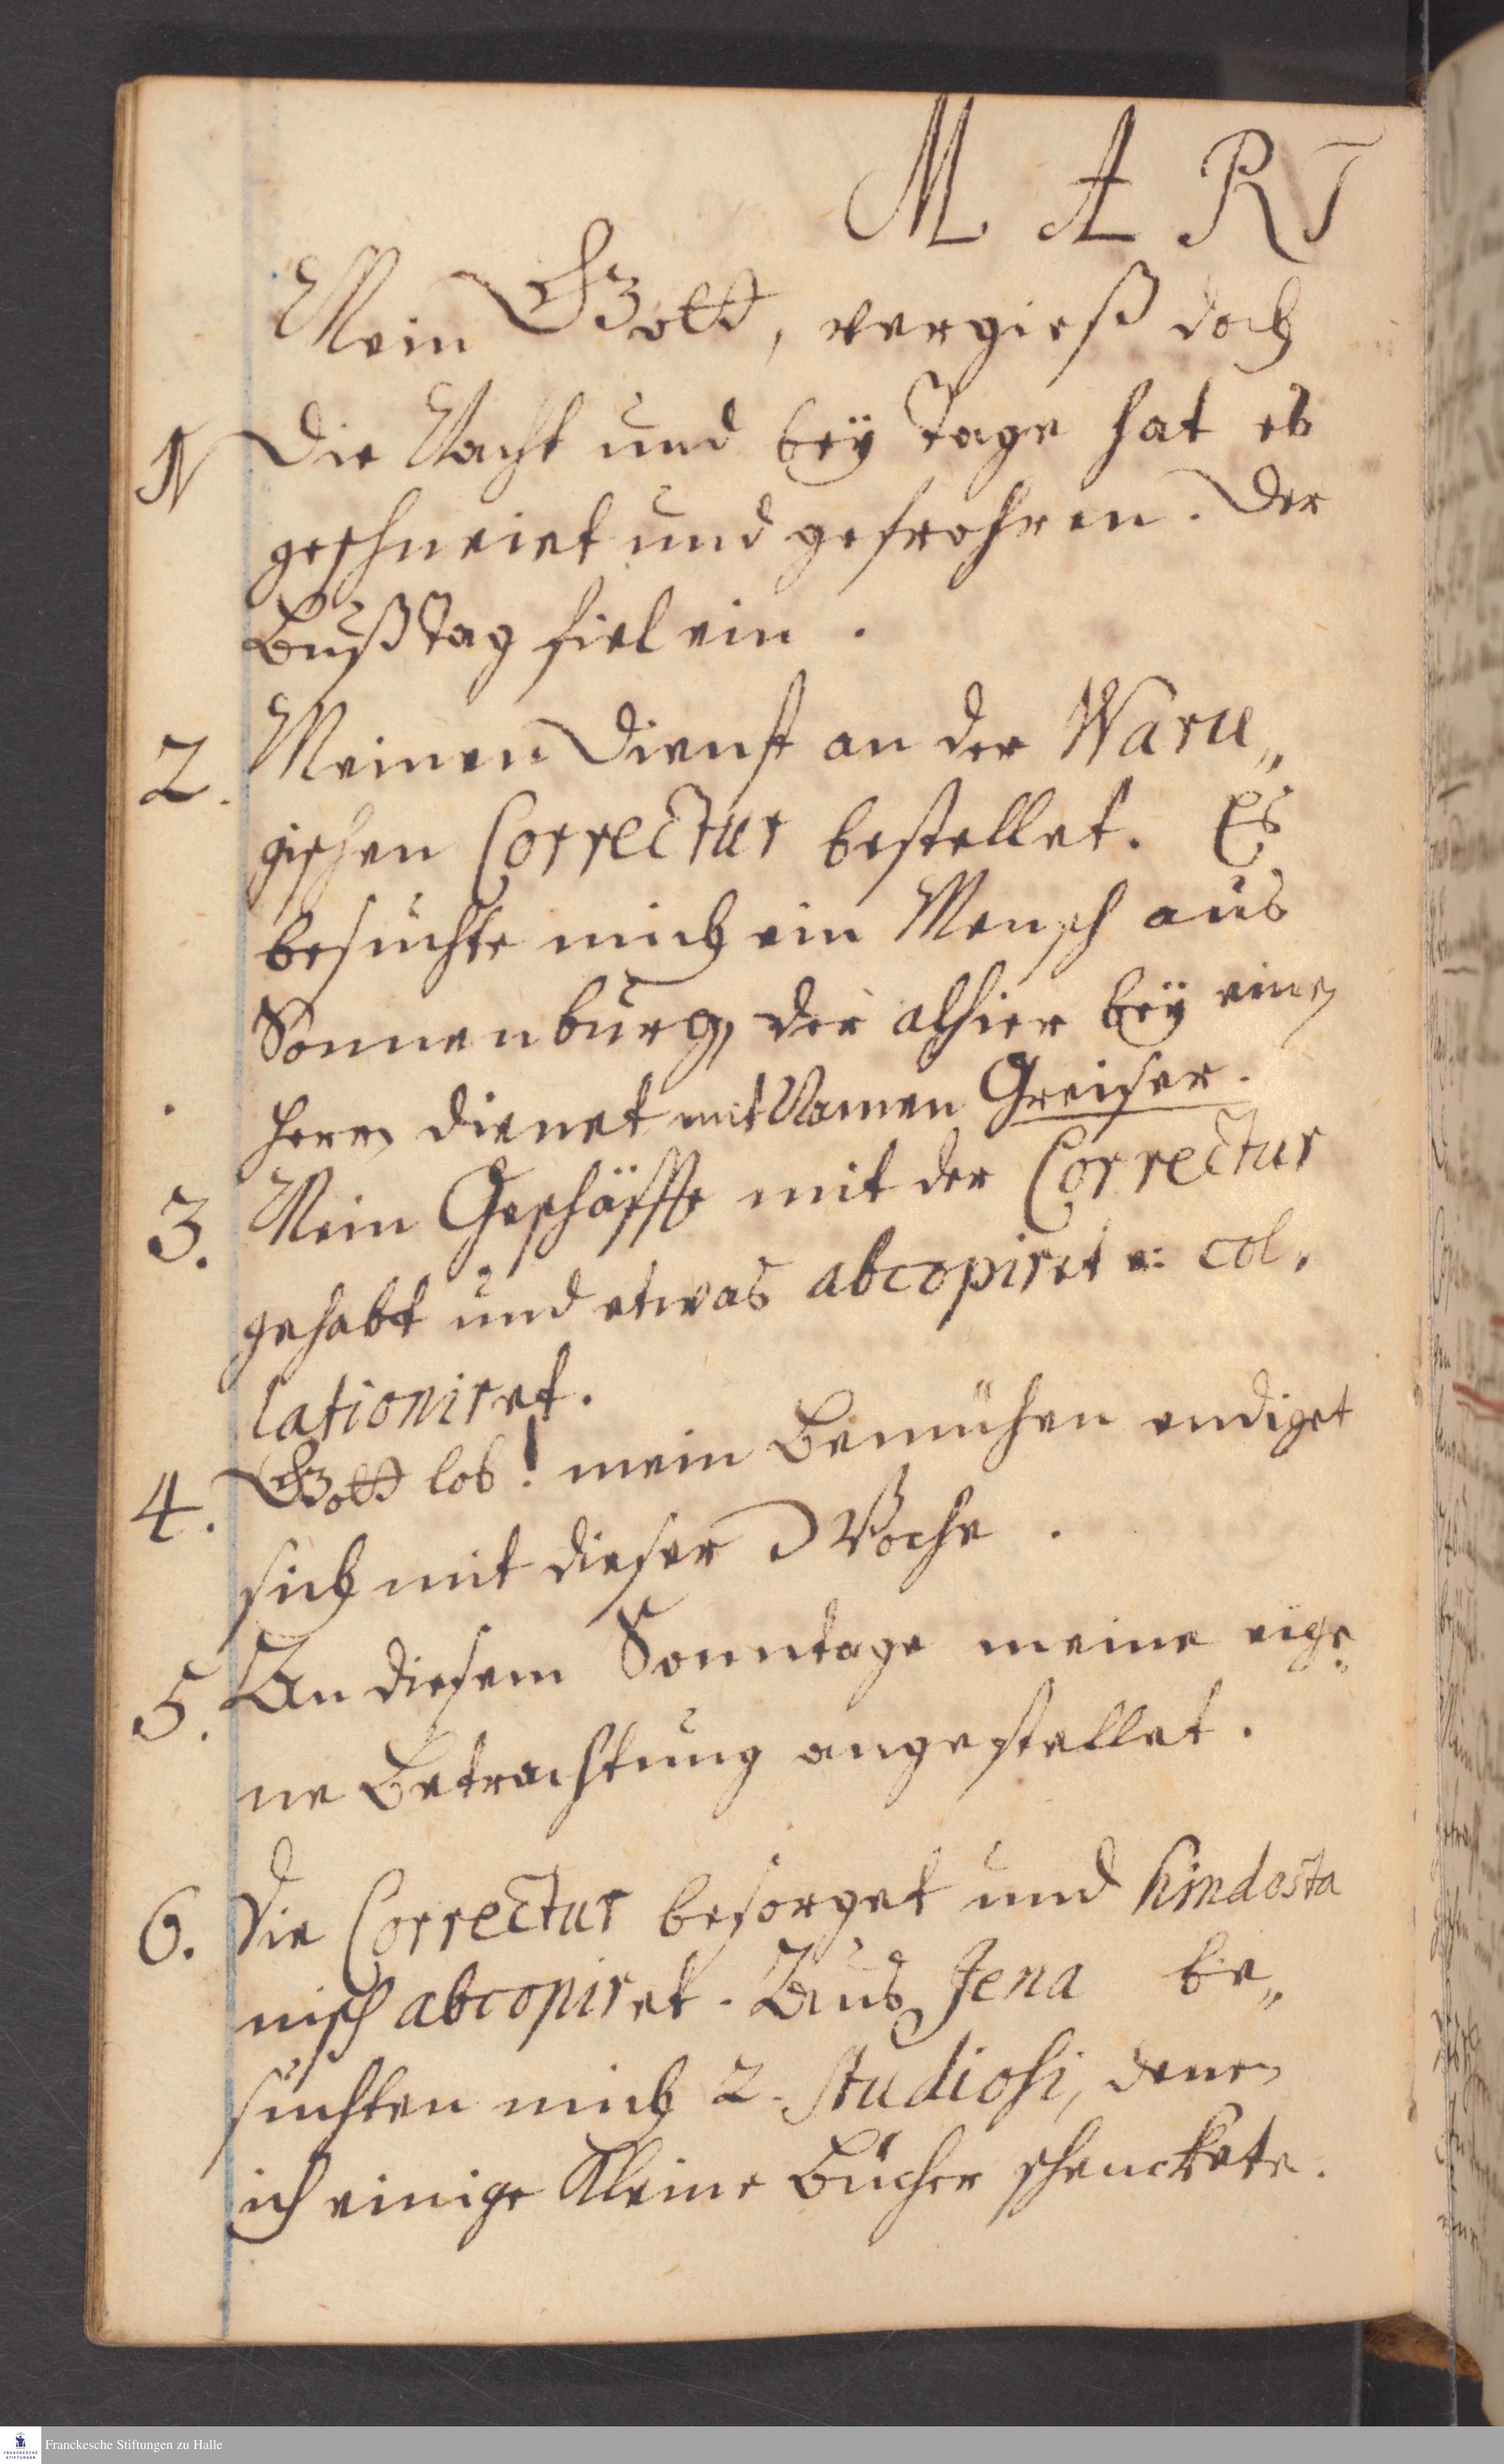 MART
Mein GOtt, vergieß doch
1 Die Nacht und beÿ Tage hat es
geschneiet und gefrohren. Der
Bußtag fiel ein.
2. Meinen Dienst an der Waru„
gischen Correctur bestellet. Es
besuchte mich ein Mensch aus
Sonnenburg, der alhier beÿ einem
Herrn dienet mit Namen Greiser.
3. Mein Geschäffte mit der Correctur
gehabt und etwas abcopiret u. col„
lationiret.
4. GOtt lob! mein Bemühen endiget
sich mit dieser Woche.
5. An diesem Sonntage meine eige„
ne Betrachtung angestellet.
6. Die Correctur besorget und hindosta
nisch abcopiret. Aus Jena be„
suchten mich 2. Studiosi, denen
ich einige Kleine Bücher schenckete.
Franckesche Stiftungen zu Halle